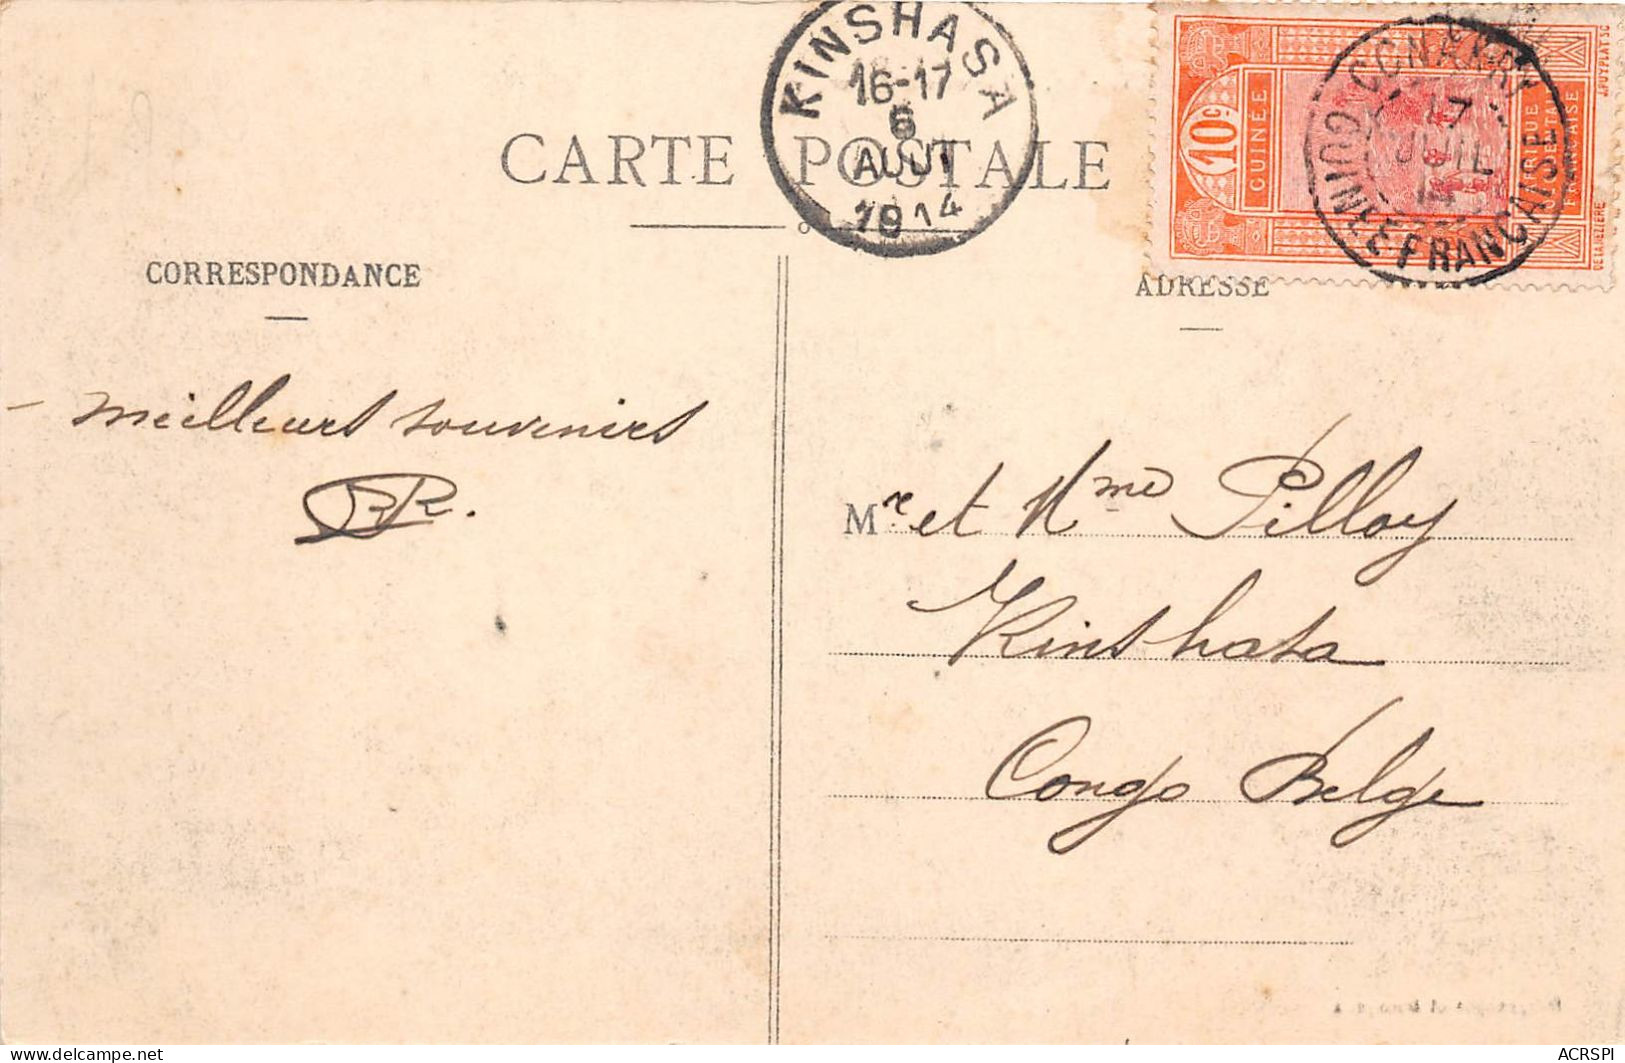 KINSHASA
16-17
6
AOUT
1914
CARTE POSTALE
10c
GUINÉE
AFRIQUE
OCCIDENTALE
FRANÇAISE
CONAKRY
17
JUIL
14
GUINÉE FRANÇAISE
CORRESPONDANCE
ADRESSE
– Meilleurs souvenirs
RR.
Mr et Mme Pilloy
Kinshasa
Congo Belge
ACRSPI